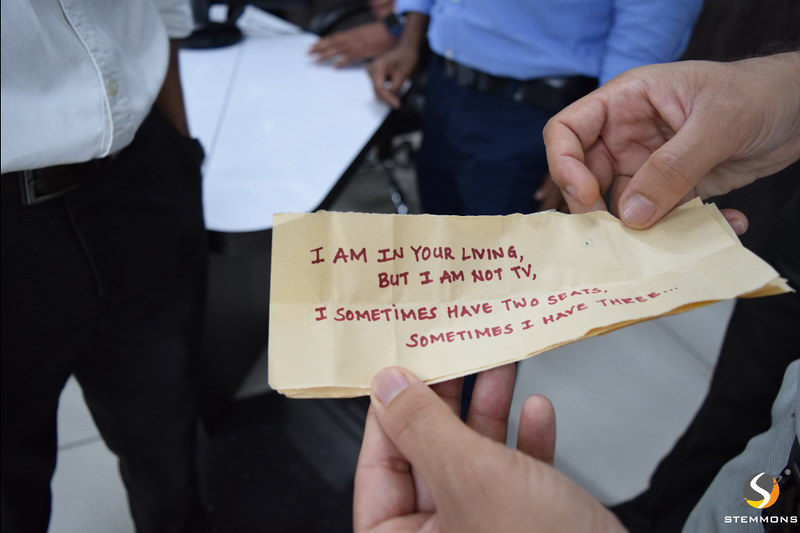 I AM IN YOUR LIVING,
BUT I AM NOT TV,
I SOMETIMES HAVE TWO SEATS,
SOMETIMES I HAVE THREE...
STEMMONS